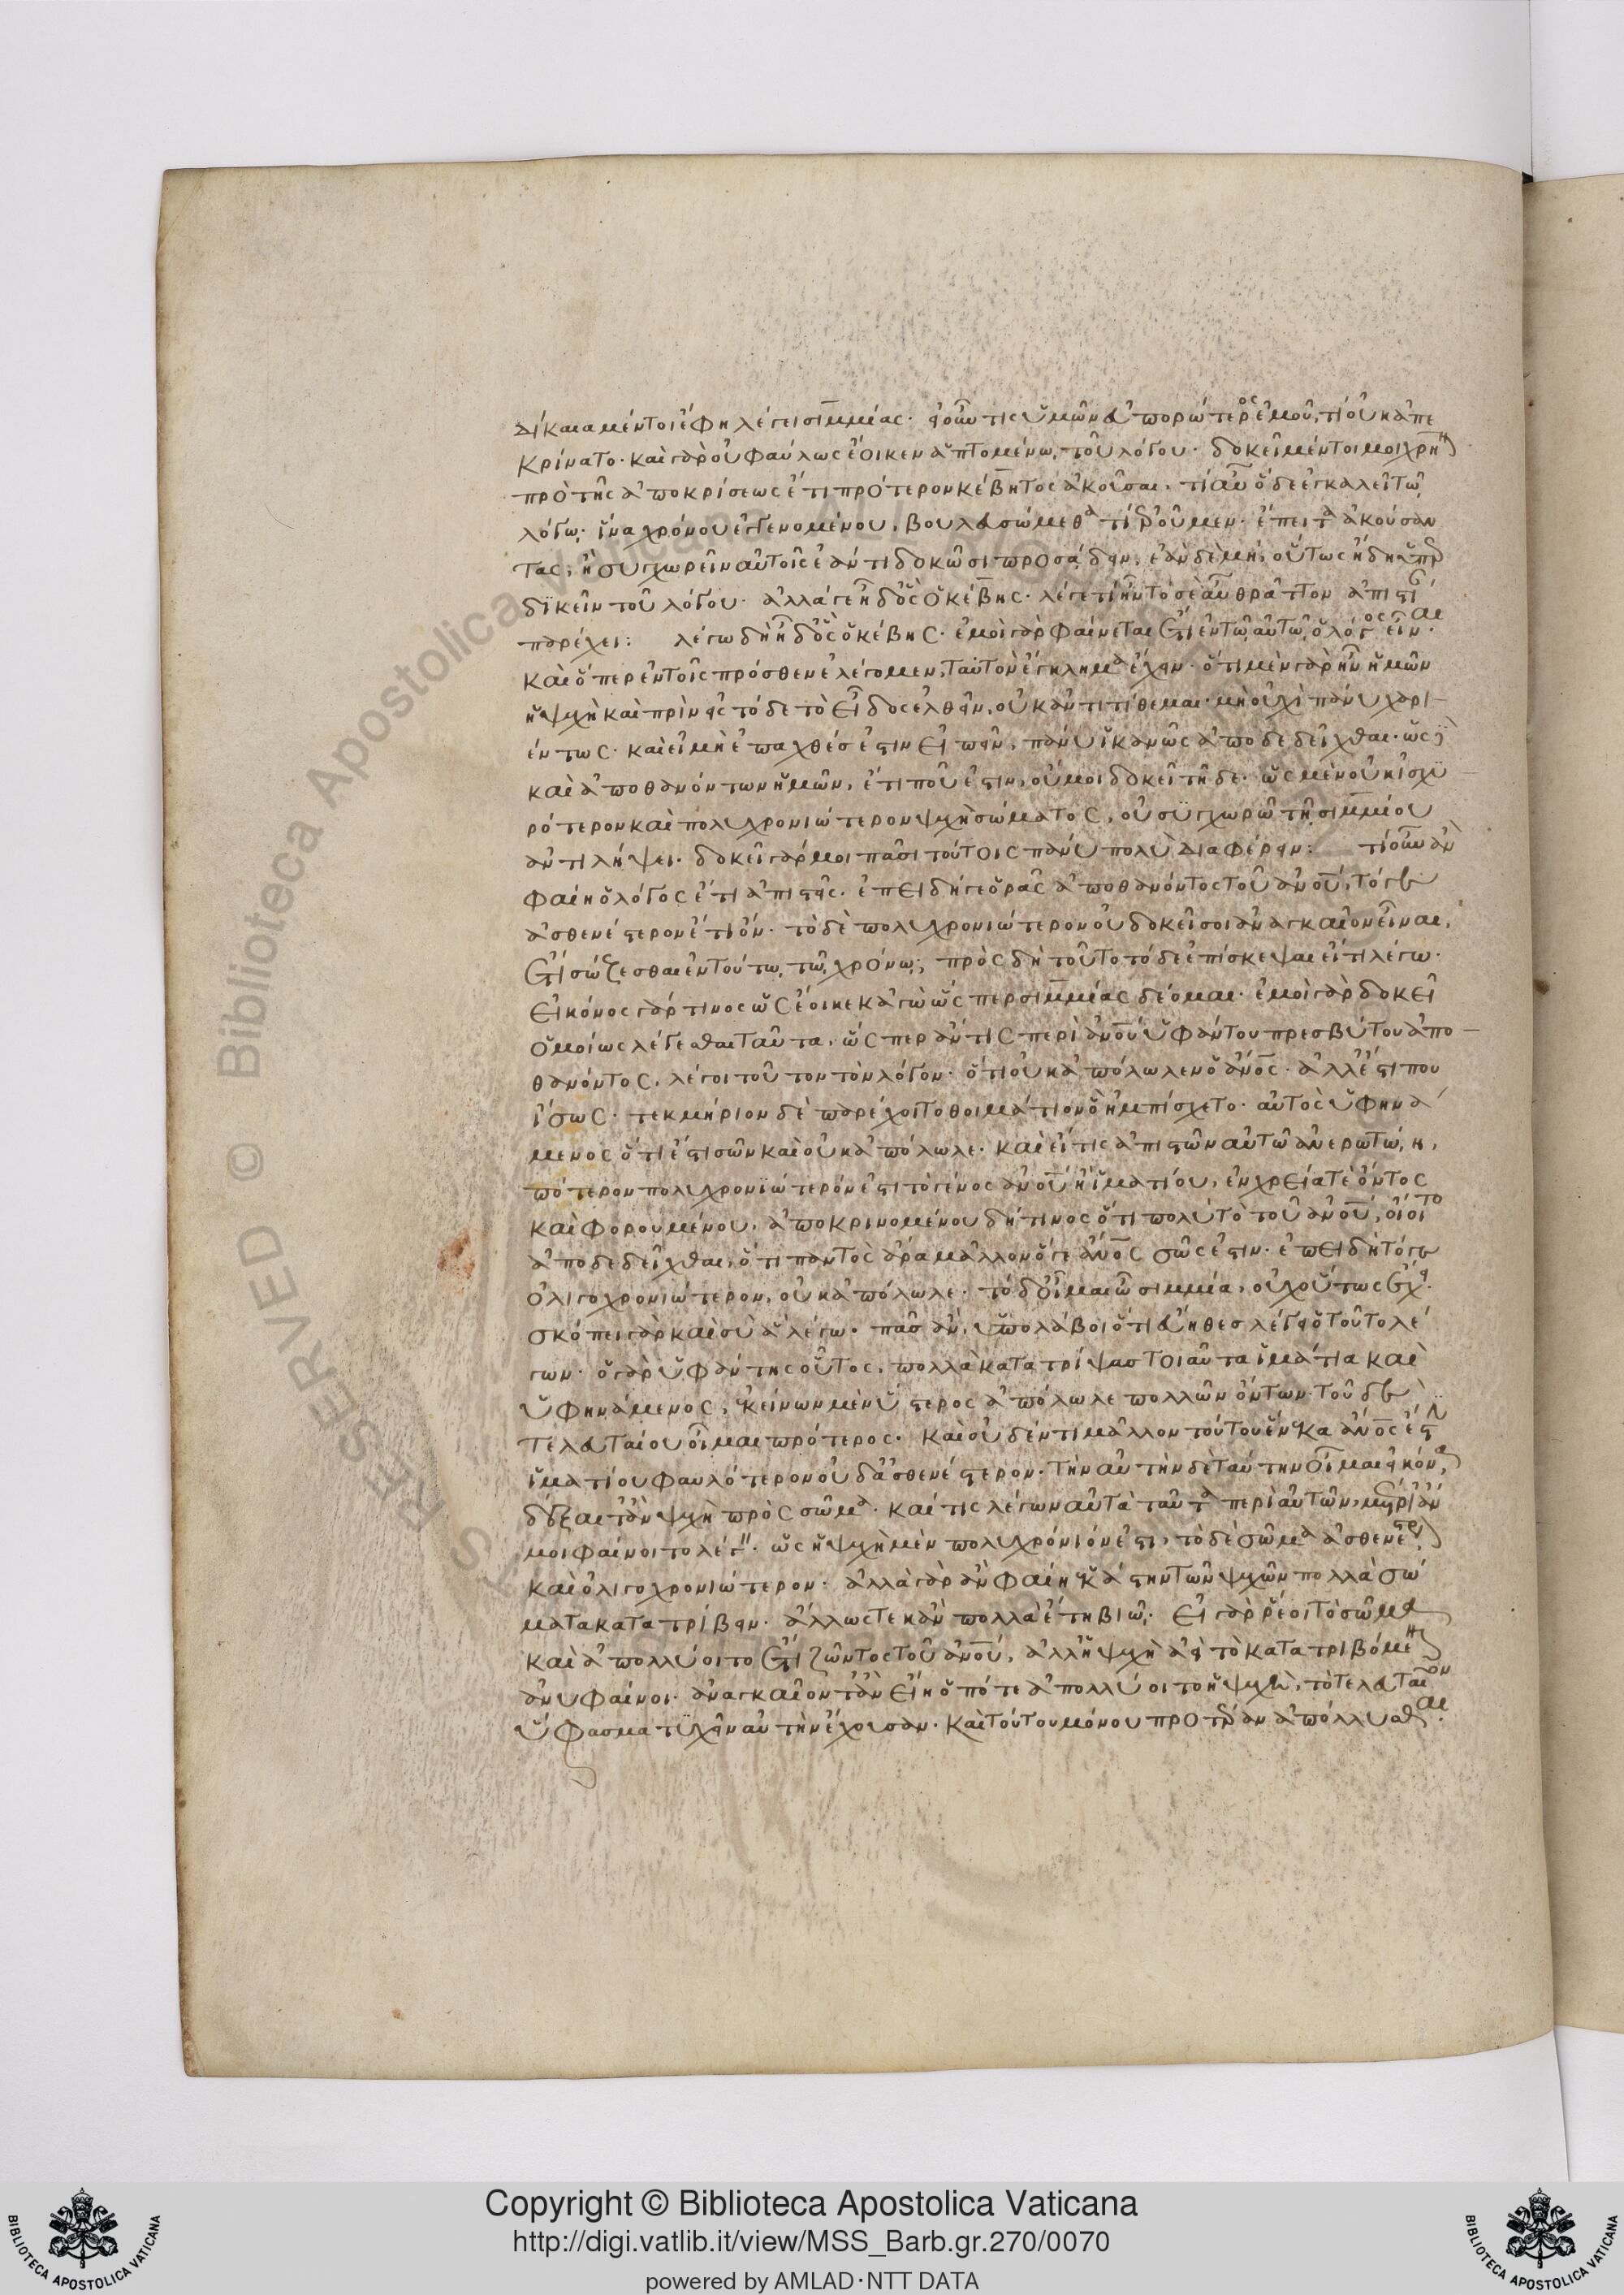 δίκαια μέντοι ἔφη λέγει σιμμίας. εἰ οὖν τις ὑμῶν εὐπορώτερος ἐμοῦ, τί οὐκ ἀπε
κρίνατο. καὶ γὰρ οὐ φαύλως ἔοικεν ἁπτομένω τοῦ λόγου. δοκεῖ μέντοι μοι χρῆν
πρὸ τῆς ἀποκρίσεως ἔτι πρότερον κέβητος ἀκοῦσαι. τί αὖ ὅδε ἐγκαλεῖ τῶ
λόγω. ἵνα χρόνου ἐγγενομένου, βουλευσώμεθα τί ἐροῦμεν. ἔπειτα ἀκούσαν
τας, ἢ συγχωρεῖν αὐτοῖς ἐάν τι δοκῶσι προσάδειν, ἐὰν δὲ μή, οὕτως ἤδη ὑπερ
δικεῖν τοῦ λόγου. ἀλλάγε ἦ δ ὃς ὦ κέβης. λέγε τί ἦν τὸ σὲ αὖ θρᾶττον ἀπιστί
παρέχει: λέγω δὴ ἦ δ ὃς ὁ κέβης. ἐμοὶ γὰρ φαίνεται ἔτι ἐν τῶ αὐτῶ ὁ λόγος εἶναι.
καὶ ὅπερ ἐν τοῖς πρόσθεν ἐλέγομεν, ταὐτὸν ἔγκλημα ἔχειν. ὅτι μὲν γὰρ ἦν ἡμῶν
ἡ ψυχὴ καὶ πρὶν εἰς τόδε τὸ εἶδος ἐλθεῖν, οὐκ ἀντιτίθεμαι. μὴ οὐχὶ πάνυ χαρι-
έντως. καὶ εἰ μὴ ἐπαχθές ἐστιν εἰπεῖν, πάνυ ἱκανῶς ἀποδεδεῖχθαι. ὡς δὲ
καὶ ἀποθανόντων ἡμῶν, ἔτι ποῦ ἐστιν, οὔ μοι δοκεῖ τῆδε. ὡς μὲν οὐκ ἰσχυ-
ρότερον καὶ πολυχρονιώτερον ψυχὴ σώματος, οὐ συγχωρῶ τῆ σιμμίου
ἀντιλήψει. δοκεῖ γάρ μοι πᾶσι τούτοις πάνυ πολὺ διαφέρειν: τί οὖν ἂν
φαίη ὁ λόγος ἔτι ἀπιστεῖς. ἐπειδή γε ὁρᾶς ἀποθανόντος τοῦ ἀνου, τό γε
ἀσθενέστερον ἔτι ὄν. τὸ δὲ πολυχρονιώτερον οὐ δοκεῖ σοι ἀναγκαῖον εἶναι,
ἔτι σώζεσθαι ἐν τούτω τῶ χρόνω; πρὸς δὴ τοῦτο τόδε ἐπίσκεψαι εἴ τι λέγω.
εἰκόνος γάρ τινος ὡς ἔοικε κἀγὼ ὥσπερ σιμμίας δέομαι. ἐμοὶ γὰρ δοκεῖ
ὁμοίως λέγεσθαι ταῦτα, ὥσπερ ἄν τις περὶ ἀνου ὑφάντου πρεσβύτου ἀπο-
θανόντος, λέγοι τοῦτον τὸν λόγον. ὅτι οὐκ ἀπόλωλεν ὁ ἄνος. ἀλλ ἔστι που
ἴσως. τεκμήριον δὲ παρέχοιτο θοἰμάτιον ὃ ἠμπίσχετο. αὐτὸς ὑφηνά
μενος ὅτι ἐστὶ σῶν καὶ οὐκ ἀπόλωλε. καὶ εἴ τις ἀπιστῶν αὐτῶ ἀνερωτώη,
πότερον πολυχρονιώτερόν ἐστι τὸ γένος ἀνου ἢ ἱματίου, ἐν χρείατε ὄντος
καὶ φορουμένου, ἀποκρινομένου δή τινος ὅτι πολὺ τὸ τοῦ ἀνου, οἴοιτο
ἀποδεδεῖχθαι, ὅτι παντὸς ἄρα μᾶλλον ὅ γε ἄνος σῶς ἐστιν. ἐπειδὴ τό γε
ὀλιγοχρονιώτερον, οὐκ ἀπόλωλε. τὸ δ οἶμαι ὦ σιμμία, οὐχ οὕτως ἔχει.
σκόπει γὰρ καὶ σὺ ἃ λέγω. πᾶς ἂν, ὑπολάβοι ὅτι εὔηθες λέγει ὁ τοῦτο λέ
γων. ὁ γὰρ ὑφάντης οὗτος, πολλὰ κατατρίψας τοιαῦτα ἱμάτια καὶ
ὑφηνάμενος, ἐκείνων μὲν ὕστερος ἀπόλωλε πολλῶν ὄντων. τοῦ δὲ
τελευταίου οἶμαι πρότερος. καὶ οὐδέν τι μᾶλλον τούτου ἕνεκα ἄνος ἐστὶν
ἱματίου φαυλότερον οὐδ ἀσθενέστερον. τὴν αὐτὴν δὲ ταύτην οἶμαι εἰκόνα
δέξαιτ ἂν ψυχὴ πρὸς σῶμα. καί τις λέγων αὐτὰ ταῦτα περὶ αὐτῶν, μέτρι ἄν
μοι φαίνοιτο λέγειν. ὡς ἡ ψυχὴ μὲν πολυχρόνιόν ἐστι, τὸ δὲ σῶμα ἀσθενέστερον
καὶ ὀλιγοχρονιώτερον. ἀλλὰ γὰρ ἂν φαίη ἑκάστην τῶν ψυχῶν πολλὰ σώ
ματα κατατρίβειν. ἄλλωστε κἂν πολλὰ ἔτη βιῶ. εἰ γὰρ ῥέοι τὸ σῶμα
καὶ ἀπολλύοιτο ἔτι ζῶντος τοῦ ἀνου, ἀλλ ἡ ψυχὴ ἀεὶ τὸ κατατριβόμενον
ἀνυφαίνοι. ἀναγκαῖον τ ἂν εἴη ὁπότε ἀπολλύοιτο ἡ ψυχὴ, τὸ τελευταῖον
ὕφασμα τυχεῖν αὐτὴν ἔχουσαν. καὶ τούτου μόνου προτέραν ἀπόλλυσθαι.
Copyright © Biblioteca Apostolica Vaticana
http://digi.vatlib.it/view/MSS_Barb.gr.270/0070
powered by AMLAD·NTT DATA